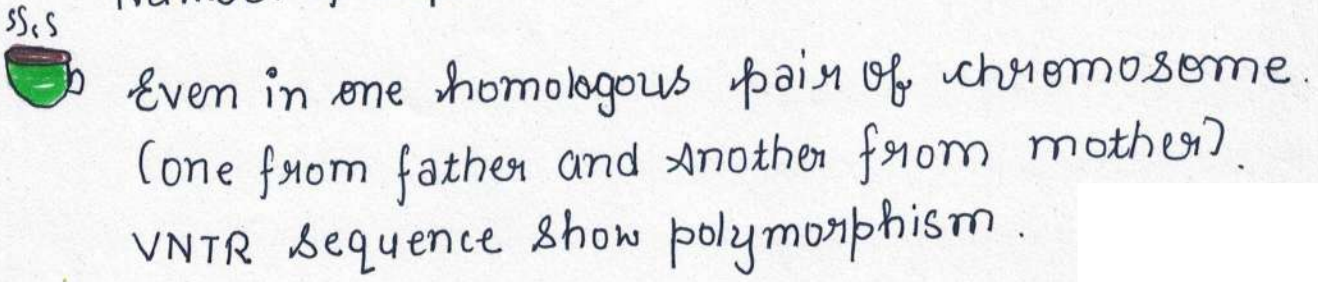 Even in one homologous pair of chromosome.
(one from father and another from mother).
VNTR sequence show polymorphism.